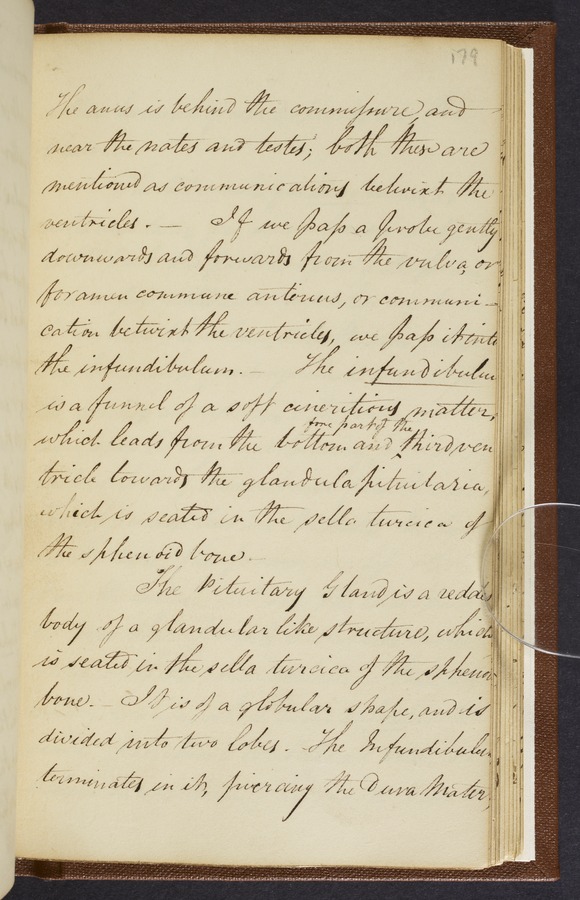 179
The anus is behind the commissure, and
near the nates and testes; both these are
mentioned as communications betwixt the
ventricles. — If we pass a probe gently
downwards and forwards from the vulva, or
foramen commune anterius, or communi-
cation betwixt the ventricles, we pass it into
the infundibulum. — The infundibulu
is a funnel of a soft cineritious matter,
fore part of the
which leads from the bottom and ^ third ven
tricle towards the glandula pituitaria,
which is seated in the sella turcica of
the sphenoid bone. —
The Pituitary Gland is a reddis
body of a glandular like structure, which
is seated in the sella turcica of the spheno
bone. — It is of a globular shape, and is
divided into two lobes. — The Infundibulu
terminates in it, piercing the Dura Mater,